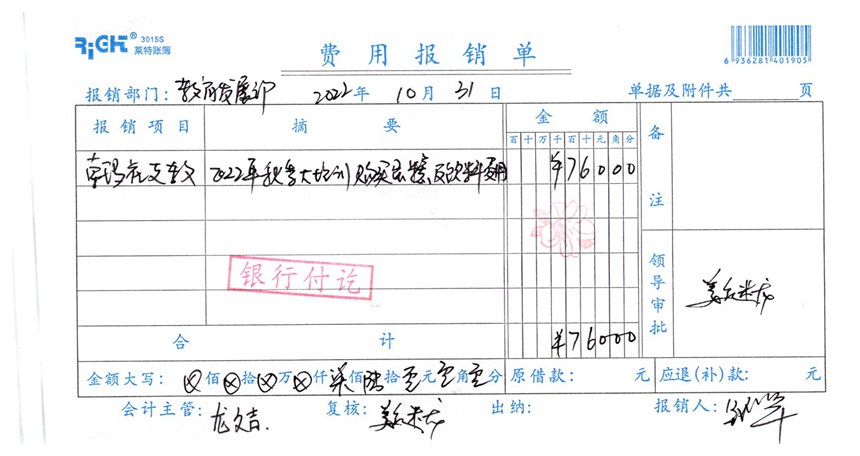 RIGHT® 3015S
莱特账簿
费用报销单
6 936281 401905
报销部门：教育发展部 2022年10月31日 单据及附件共 页
报销项目 摘要 金额 备注
百十万千百十元角分
2022年秋季大培训购买 及饮料费用 ¥76000
银行付讫
领导审批
合计 ¥76000
金额大写：⊗佰⊗拾⊗万⊗仟柒佰陆拾零元零角零分 原借款： 元 应退(补)款： 元
会计主管：龙文吉. 复核： 出纳： 报销人：